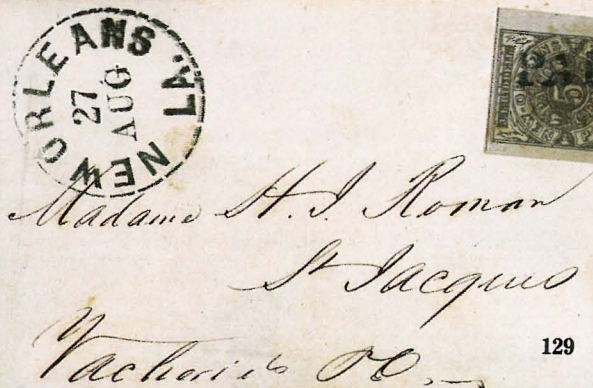 NEW ORLEANS LA.
27
AUG
PAID
Madame H. J. Roman
St Jacques
Vacherie's P.O.
129